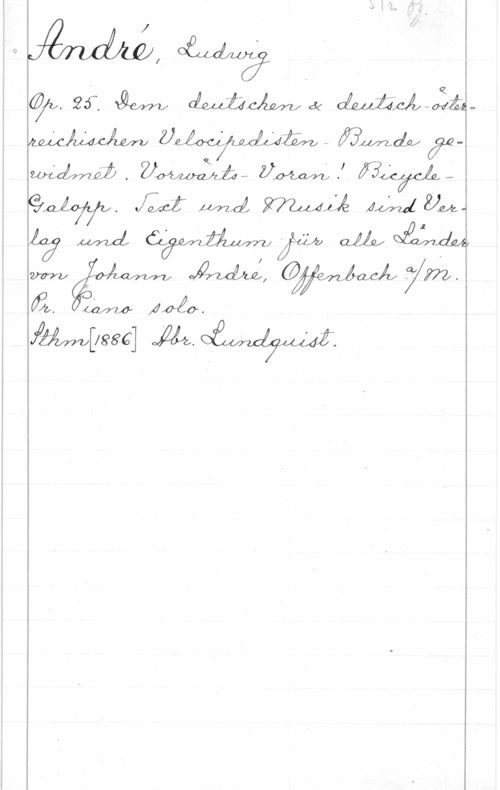 André, Ludwig
Op. 25. Dem deutschen & deutsch-öster-
reichischen Velocipedisten-Bunde ge-
widmet. Vorwärts-Voran! Bicycle-
Galopp. Text und Musik sind Ver-
lag und Eigenthum für alle Länder
von Johann André, Offenbach a/m.
Pr. Piano solo.
Sthm[1886] Abr. Lundquist.